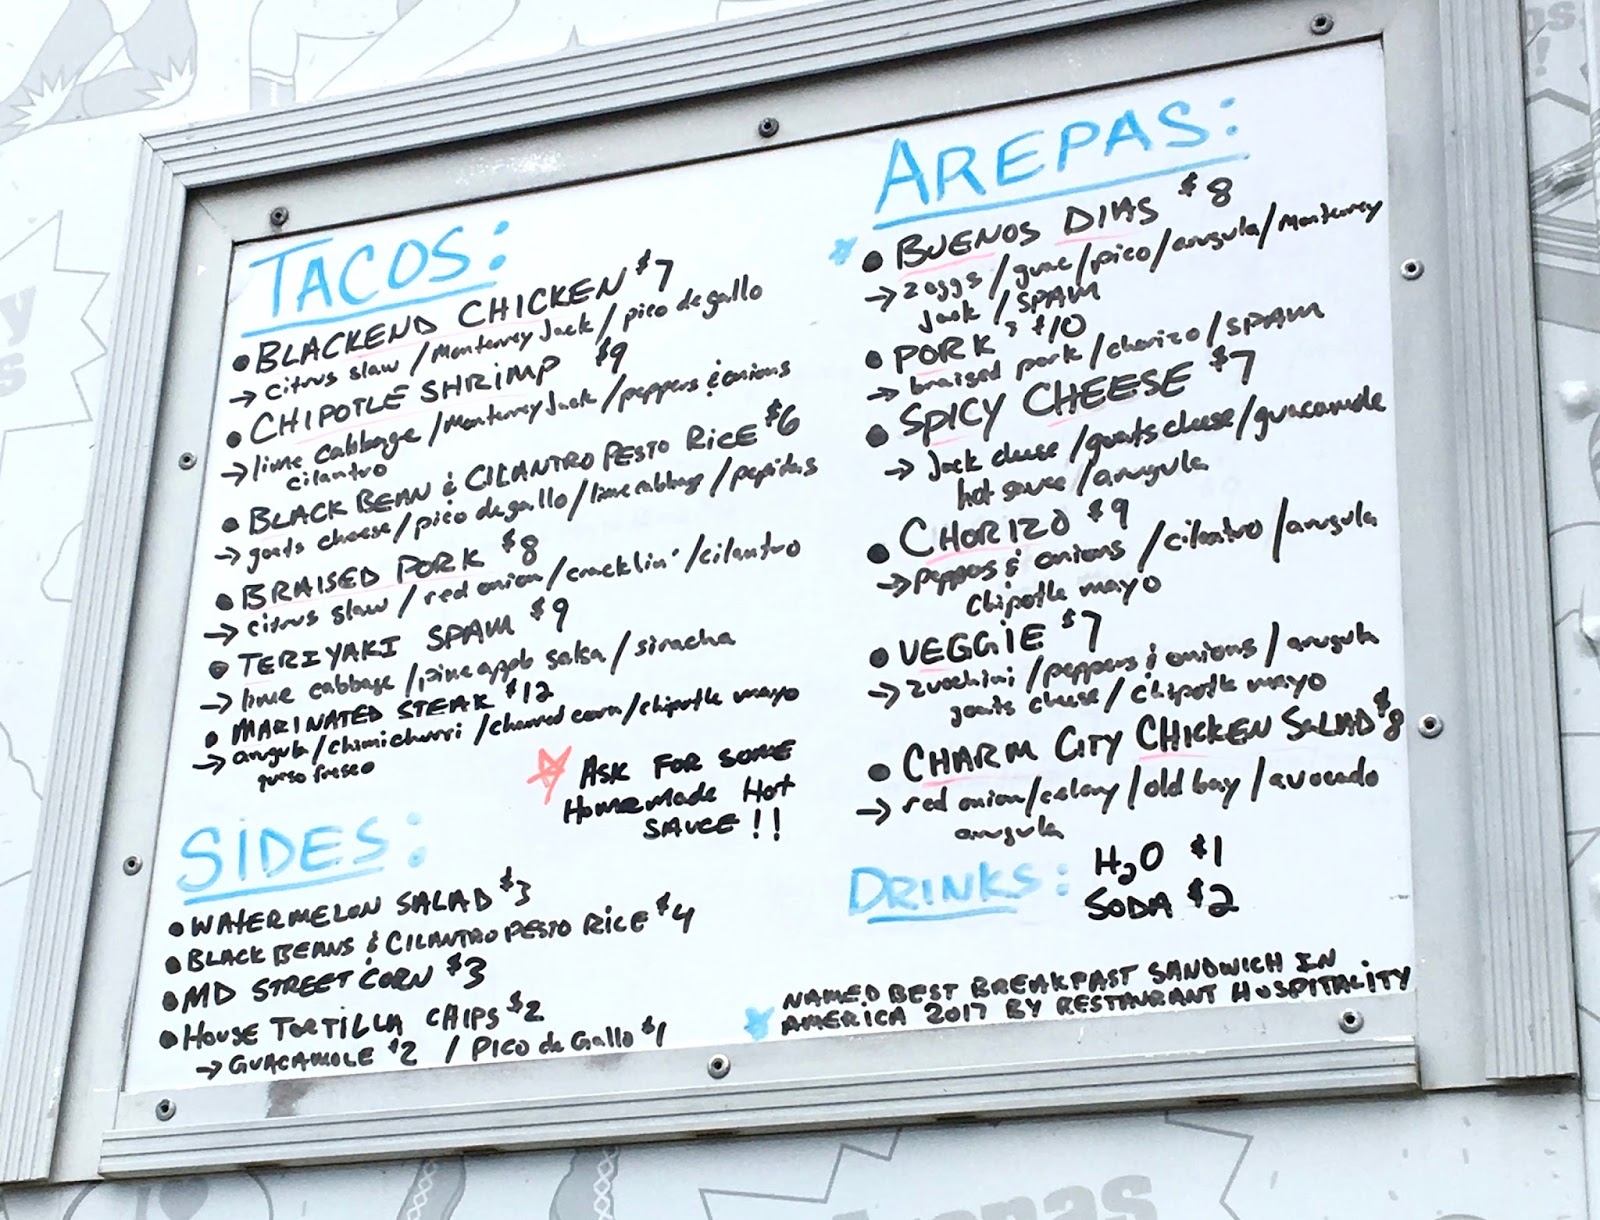 TACOS:
• BLACKEND CHICKEN $7
→ citrus slaw / Monterrey Jack / pico de gallo
• CHIPOTLE SHRIMP $9
→ lime cabbage / Monterrey Jack / peppers & onions
cilantro
• BLACK BEAN & CILANTRO PESTO RICE $6
→ goats cheese / pico de gallo / lime cabbage / pepitas
• BRAISED PORK $8
→ citrus slaw / red onion / cracklin' / cilantro
• TERIYAKI SPAM $9
→ lime cabbage / pineapple salsa / siracha
• MARINATED STEAK $12
→ arugula / chimichurri / charred corn / chipotle mayo
queso fresco
ASK FOR SOME
HOMEMADE HOT
SAUCE!!
SIDES:
• WATERMELON SALAD $3
• BLACK BEANS & CILANTRO PESTO RICE $4
• MD STREET CORN $3
• HOUSE TORTILLA CHIPS $2
→ GUACAMOLE $2 / PICO de GALLO $1
AREPAS:
• BUENOS DIAS $8
→ 2 eggs / guac / pico / arugula / Monterrey
Jack / SPAM
• PORK³ $10
→ braised pork / chorizo / SPAM
• SPICY CHEESE $7
→ Jack cheese / goats cheese / guacamole
hot sauce / arugula
• CHORIZO $9
→ peppers & onions / cilantro / arugula
chipotle mayo
• VEGGIE $7
→ zucchini / peppers & onions / arugula
goats cheese / chipotle mayo
• CHARM CITY CHICKEN SALAD $8
→ red onion / celery / old bay / avocado
arugula
DRINKS:
H₂O $1
SODA $2
NAMED BEST BREAKFAST SANDWICH IN
AMERICA 2017 BY RESTAURANT HOSPITALITY